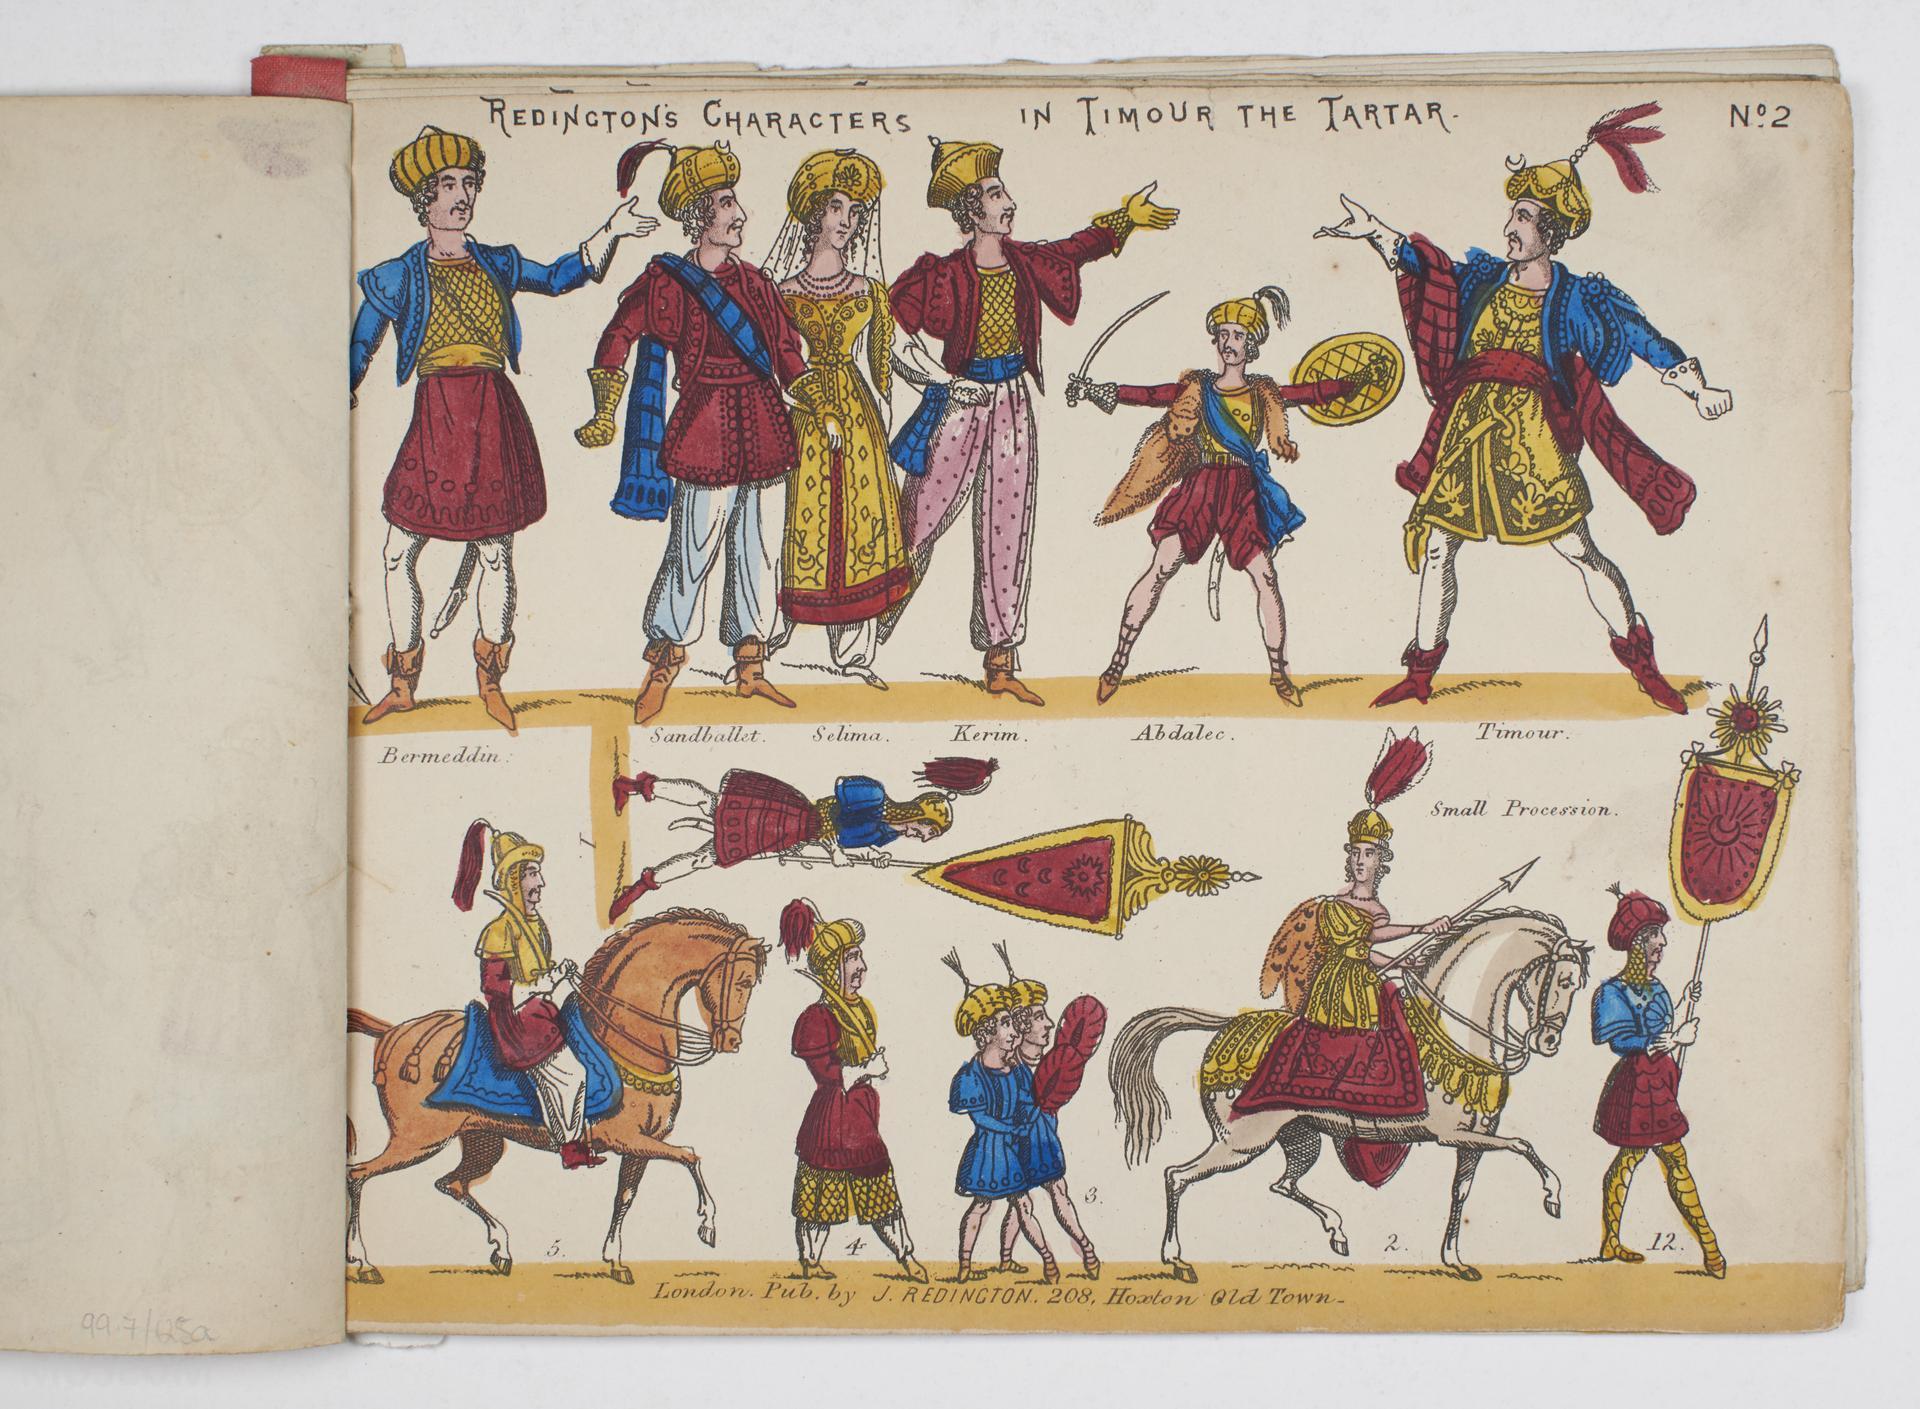 REDINGTON'S CHARACTERS IN TIMOUR THE TARTAR. Nº 2
Bermeddin. Sandballet. Selima. Kerim. Abdalec. Timour.
Small Procession.
1
5. 4 3. 2. 12.
London. Pub. by J. REDINGTON. 208, Hoxton Old Town.
99.7/125a